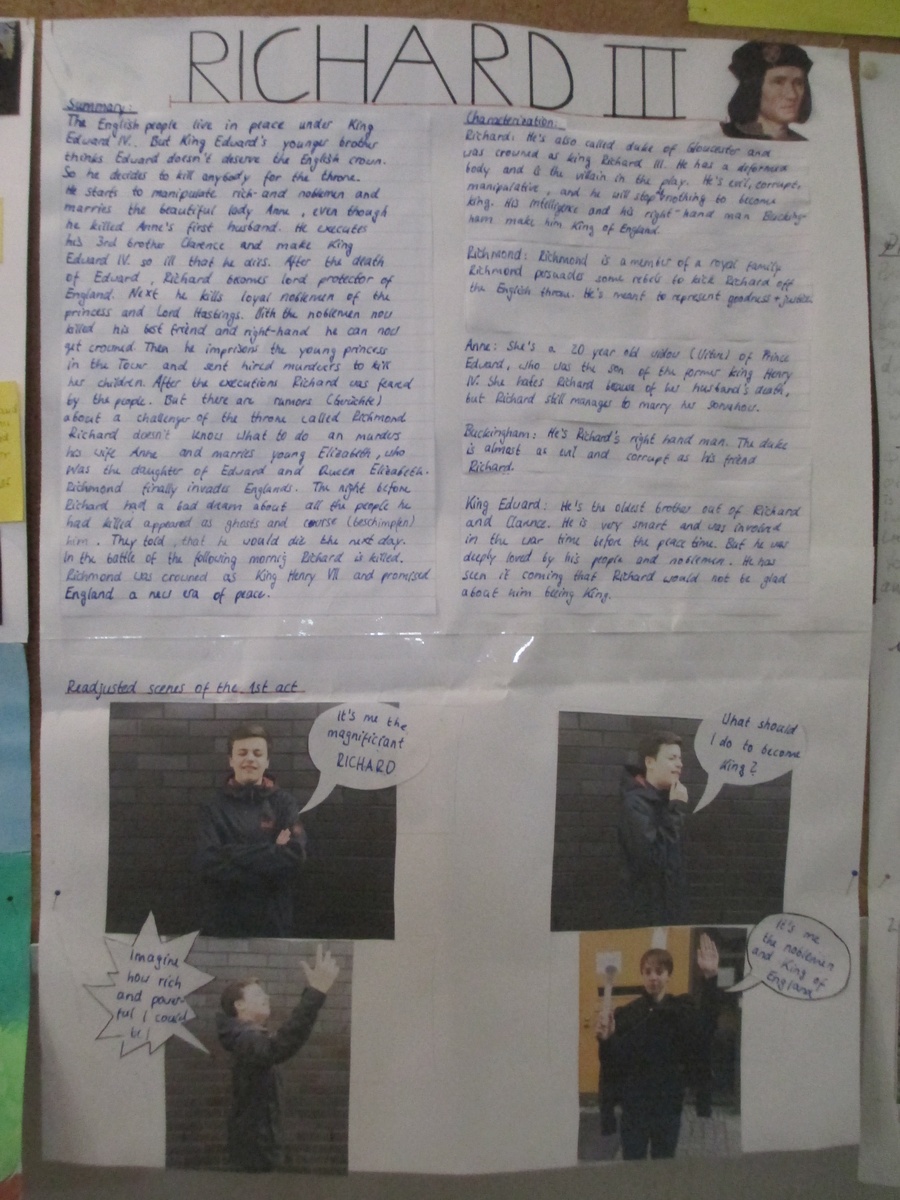 RICHARD III
Summary:
The English people live in peace under King
Edward IV.. But King Edward's younger brother
thinks Edward doesn't deserve the English crown.
So he decides to kill anybody for the throne.
He starts to manipulate rich-and noblemen and
marries the beautiful lady Anne, even though
he killed Anne's first husband. He executes
his 3rd brother Clarence and make King
Edward IV. so ill that he dies. After the death
of Edward, Richard becomes lord protector of
England. Next he kills loyal noblemen of the
princess and Lord Hastings. With the noblemen now
killed his best friend and right-hand he can now
get crowned. Then he imprisons the young princess
in the Tower and sent hired murders to kill
her children. After the executions Richard was feared
by the people. But there are rumors (Gerüchte)
about a challenger of the throne called Richmond
Richard doesn't know what to do an murders
his wife Anne and marries young Elizabeth, who
was the daughter of Edward and Queen Elizabeth.
Richmond finally invades Englands. The night before
Richard had a bad dream about all the people he
had killed appeared as ghosts and course (beschimpfen)
him. They told, that he would die the next day.
In the battle of the following mornig Richard is killed.
Richmond was crowned as King Henry VII and promised
England a new era of peace.
Characterination:
Richard: He's also called duke of Gloucester and
was crowned as king Richard III. He has a deformed
body and is the villain in the play. He's evil, corrupt,
manipulative, and he will stop nothing to become
king. His intelligence and his right-hand man Bucking-
ham make him King of England.
Richmond: Richmond is a member of a royal family
Richmond persuades some rebels to kick Richard off
the English throne. He's meant to represent goodness + justice.
Anne: She's a 20 year old widow (Witwe) of Prince
Edward, who was the son of the former king Henry
IV. She hates Richard because of her husband's death,
but Richard still manages to marry her somehow.
Buckingham: He's Richard's right hand man. The duke
is almost as evil and corrupt as his friend
Richard.
King Edward: He's the oldest brother out of Richard
and Clarence. He is very smart and was involved
in the war time before the peace time. But he was
deeply loved by his people and noblemen. He has
seen it coming that Richard would not be glad
about him being King.
Readjusted scenes of the 1st act
It's me the
magnificiant
RICHARD
What should
I do to become
King?
Imagine
how rich
and power-
ful I could
be!
It's me
the noblemen
and King of
England